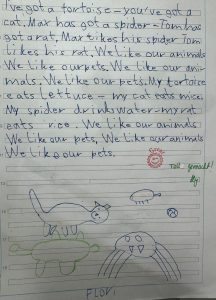 I've got a tortoise - you've got a
cat, Max has got a spider - Tom has
got a rat, Max likes his spider Tom
likes his rat. We like our animals
We like our pets. We like our ani-
mals. We like our pets. My tortoise
eats lettuce - my cat eats mice.
My spider drinks water - my rat
eats rice. We like our animals
We like our pets, We like our animals
We like our pets.
Toll gemacht!
FLORI